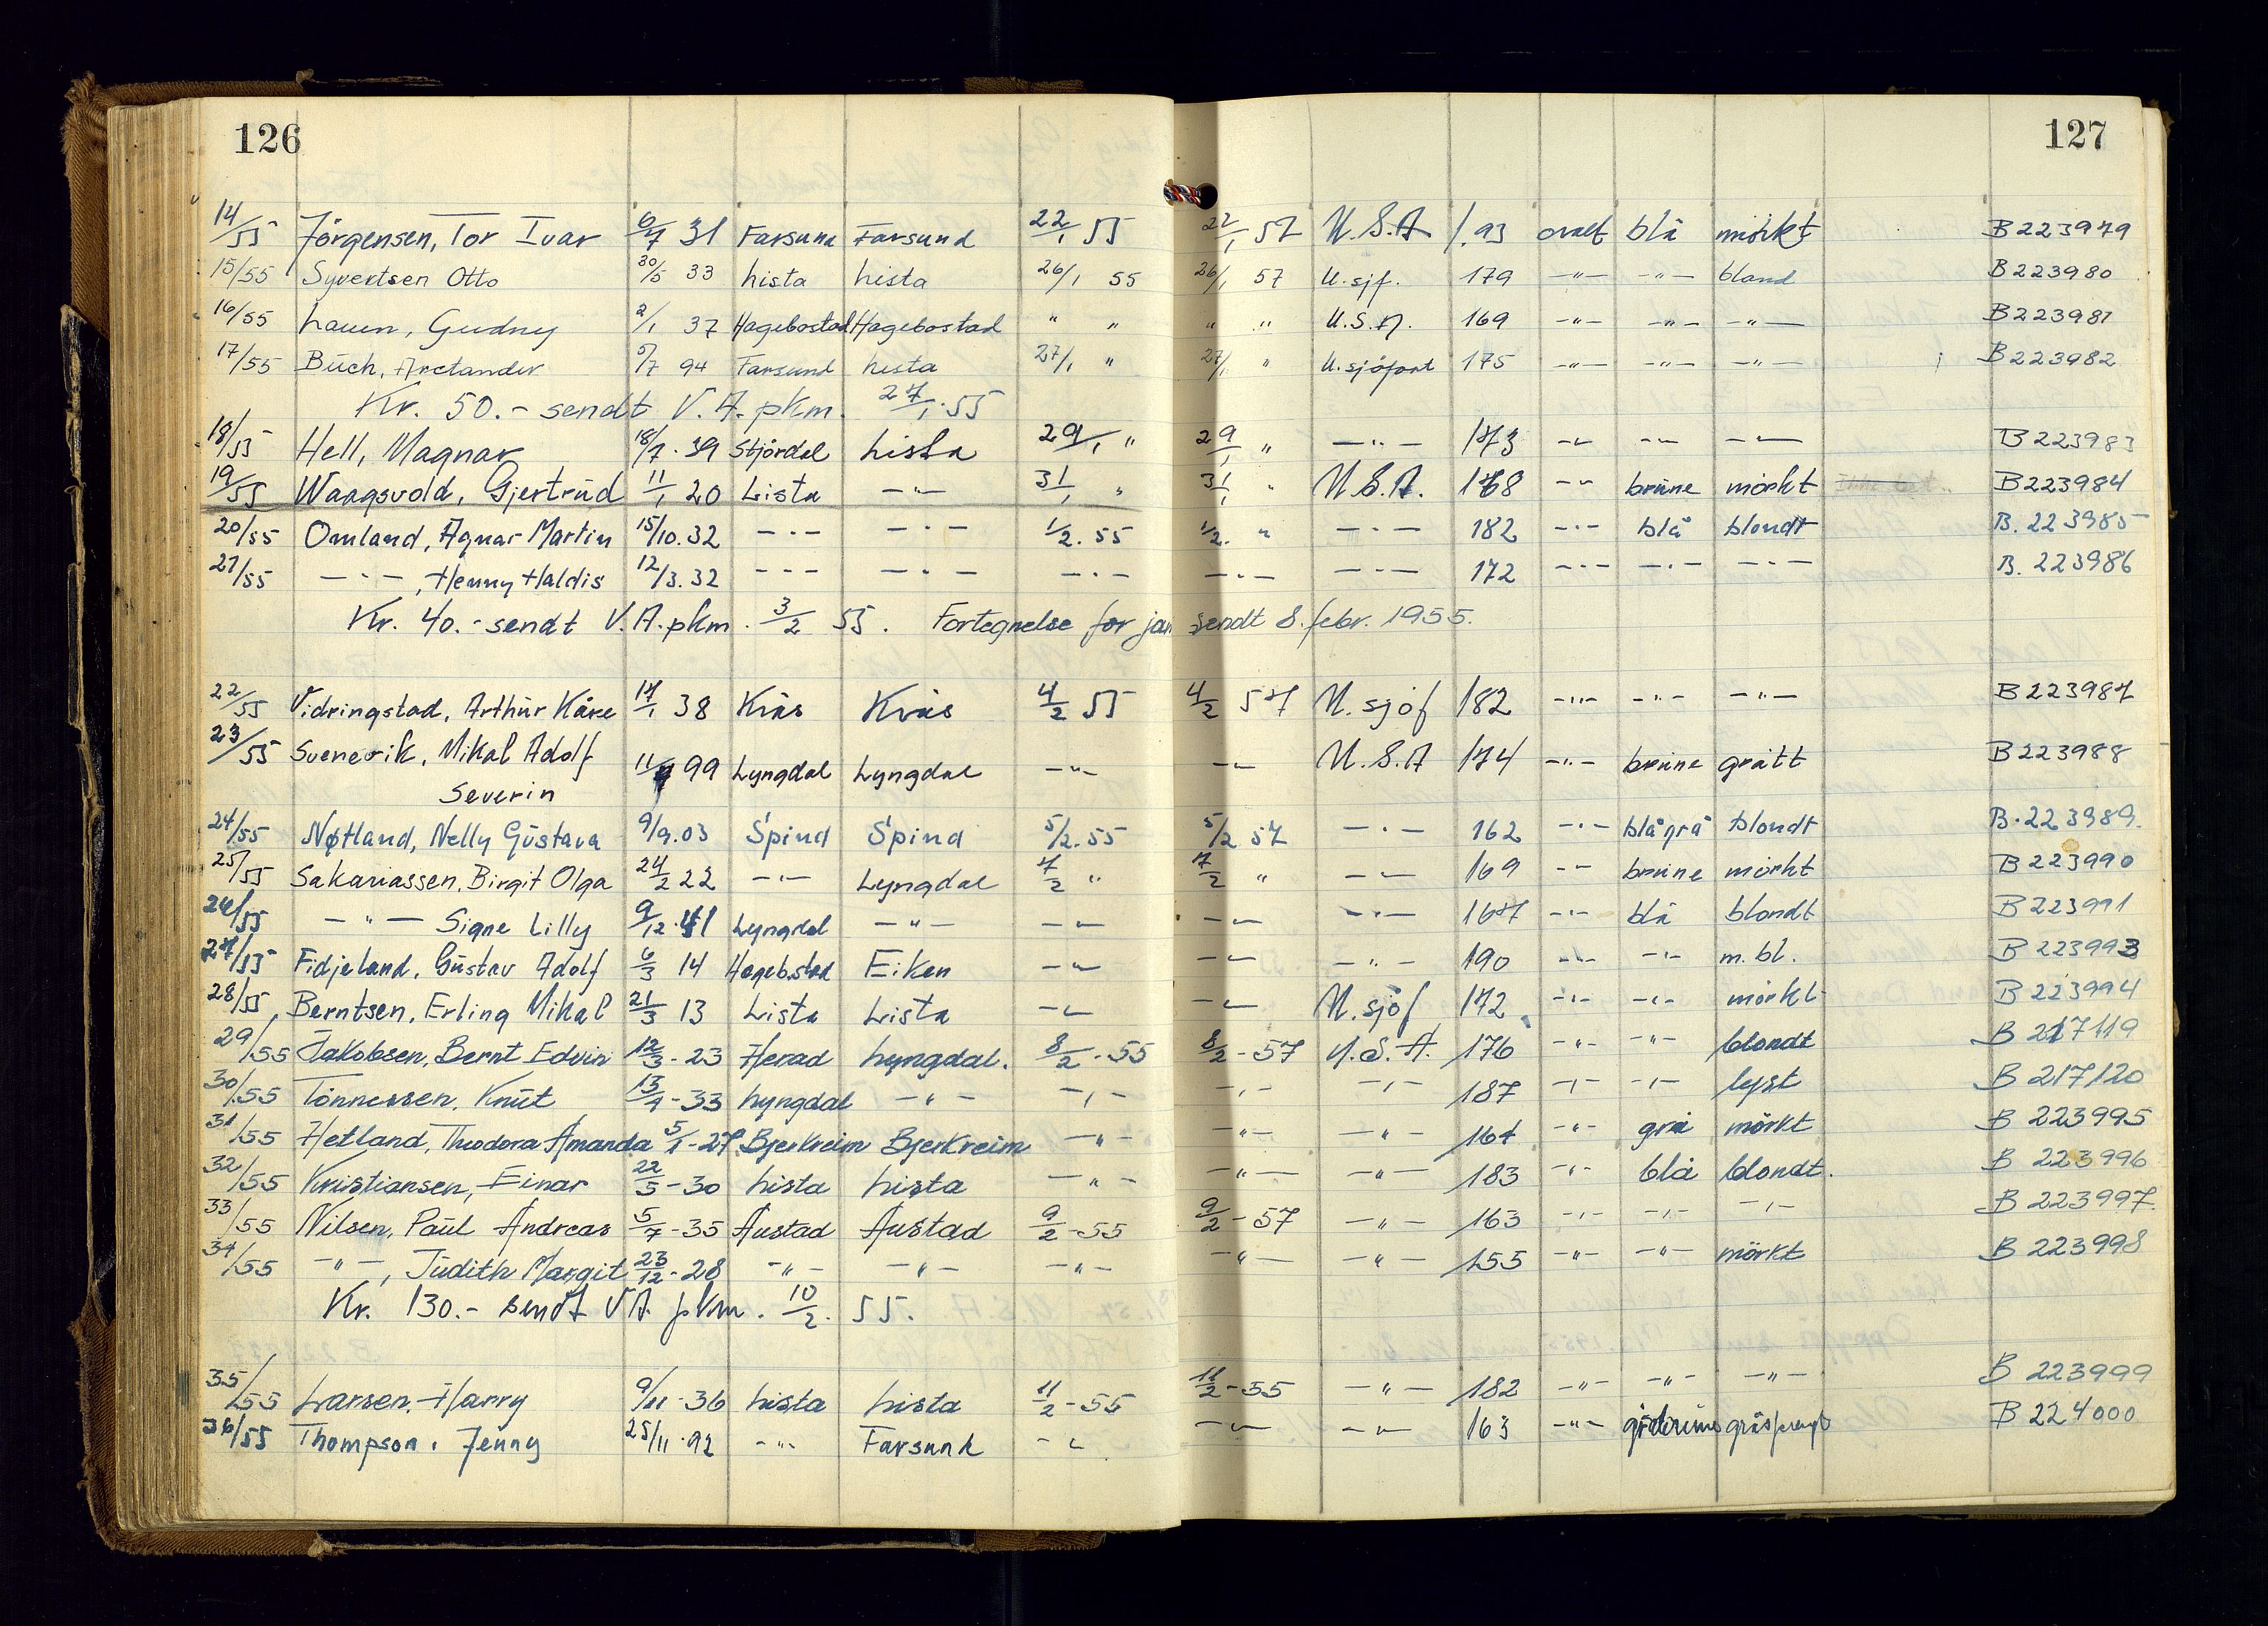 126 127
14/55 Jörgensen, Tor Ivar 6/7 31 Farsund Farsund 22/1 55 22/1 57 U.S.A 1.93 ovalt blå mörkt B 223979
15/55 Syvertsen Otto 30/5 33 Lista Lista 26/1 55 26/1 57 U. sjf. 179 -"- -"- bland B 223980
16/55 Lauen, Gudny 2/1 37 Hagebostad Hagebostad " " " " U.S.A. 169 -"- -"- -"- B 223981
17/55 Buch, Arctander 5/7 94 Farsund Lista 27/1 " 27/1 " U. sjöfart 175 -"- -"- -"- B 223982
Kr. 50.- sendt V.A. pkm. 27/1.55
18/55 Hell, Magnar 18/7.39 Stjördal Lista 29/1 " 29/1 " -"- 173 -"- -"- -"- B 223983
19/55 Waagsvold, Gjertrud 11/1 20 Lista -"- 31/1 " 31/1 " U.S.A. 168 -"- brune mörkt B 223984
20/55 Omland, Agnar Martin 15/10.32 -"- -"- 1/2.55 1/2. " -"- 182 -"- blå blondt B. 223985
21/55 -"-, Henny Haldis 12/3.32 -"- -"- -"- -"- -"- 172 -"- -"- -"- B. 223986
Kr. 40.- sendt V.A. pkm. 3/2 55. Fortegnelse for jan sendt 8. febr. 1955.
22/55 Vidringstad, Arthur Kåre 17/1 38 Kvås Kvås 4/2 55 4/2 57 U. sjöf 182 -"- -"- -"- B 223987
23/55 Svenevik, Mikal Adolf
Severin 99 Lyngdal Lyngdal -"- -"- U.S.A 174 -"- brune grått B 223988
24/55 Nøtland, Nelly Gustava 9/9.03 Spind Spind 5/2.55 5/2 57 -"- 162 -"- blågrå blondt B. 223989.
25/55 Sakariassen, Birgit Olga 24/2 22 -"- Lyngdal 7/2 " 7/2 " -"- 169 -"- brune mörkt B 223990
26/55 -"- Signe Lilly 9/12.41 Lyngdal -"- -"- -"- -"- 167 -"- blå blondt B 223991
27/55 Fidjeland, Gustav Adolf 6/3 14 Hagebstad Eiken -"- -"- -"- 190 -"- -"- m. bl. B 223993
28/55 Berntsen, Erling Mikal 21/3 13 Lista Lista -"- -"- U. sjöf 172 -"- -"- mörkt B 223994
29/55 Jakobsen, Bernt Edvin 12/3-23 Herad Lyngdal. 8/2-55 8/2-57 U.S.A. 176 -"- -"- blondt B 217119
30/55 Tönnessen, Knut 13/4-33 Lyngdal -"- -"- -"- -"- 187 -"- -"- lyst B 217120
31/55 Hetland, Theodora Amanda 5/1-27 Bjerkreim Bjerkreim -"- -"- -"- 164 -"- grå mörkt B 223995
32/55 Kristiansen, Einar 22/5-30 Lista Lista -"- -"- -"- 183 -"- blå blondt. B 223996
33/55 Nilsen, Paul Andreas 5/7-35 Austad Austad 9/2-55 9/2-57 -"- 163 -"- -"- -"- B 223997.
34/55 -"-, Judith Margit 23/12-28 -"- -"- -"- -"- -"- 155 -"- -"- mörkt B 223998
Kr. 130.- sendt V.A. pkm. 10/2. 55.
35/55 Larsen, Harry 9/11-36 Lista Lista 11/2-55 11/2-55 -"- 182 -"- -"- -"- B 223999
36/55 Thompson, Jenny 25/11.92 -"- Farsund -"- -"- -"- 163 -"- B 224000